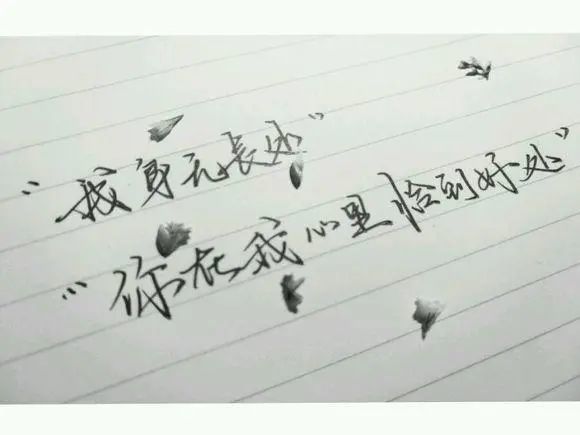 “我身无長处”
“你在我心里恰到好处”